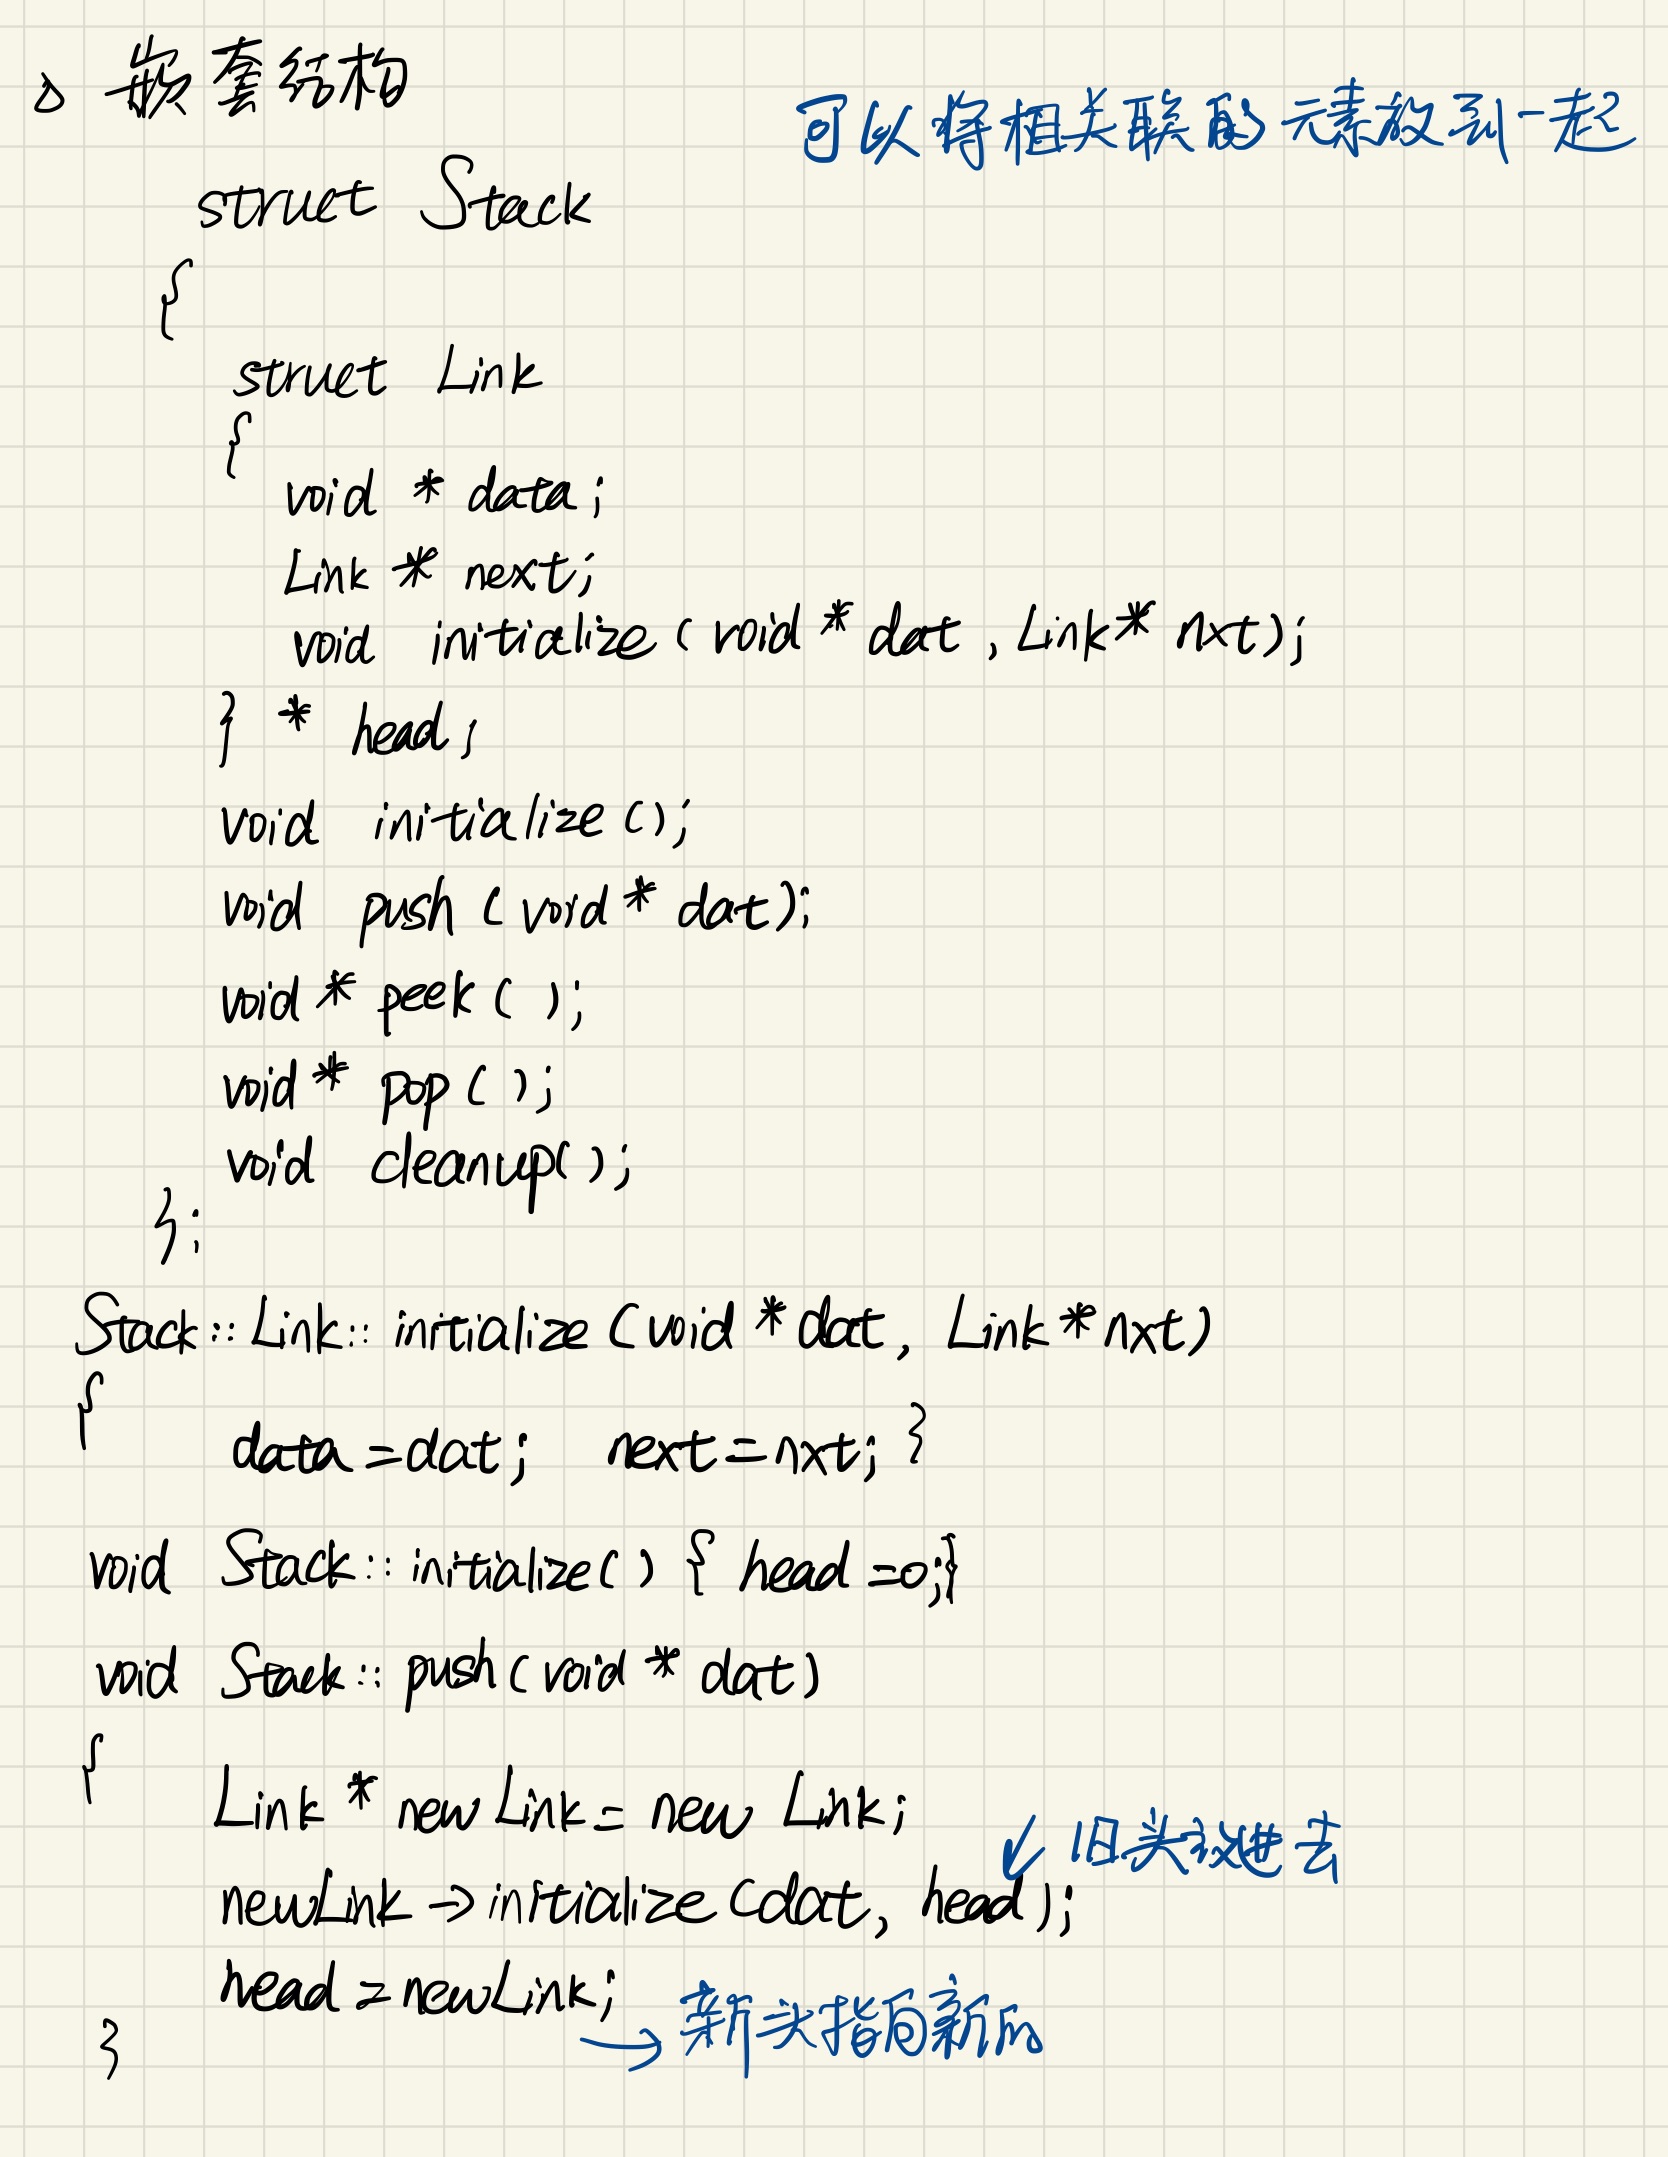 嵌套结构
可以将相关联的元素放到一起
struct Stack
{
struct Link
{
void * data;
Link * next;
void initialize (void * dat, Link * nxt);
} * head;
void initialize ();
void push (void * dat);
void * peek ( );
void * pop ( );
void cleanup( );
};
Stack :: Link :: initialize (void * dat, Link * nxt)
{
data = dat; next = nxt; }
void Stack :: initialize( ) { head = 0;}
void Stack :: push (void * dat)
{
Link * newLink = new Link;
↙ 旧头放进去
newLink -> initialize (dat, head);
head = newLink;
→ 新头指向新的
}